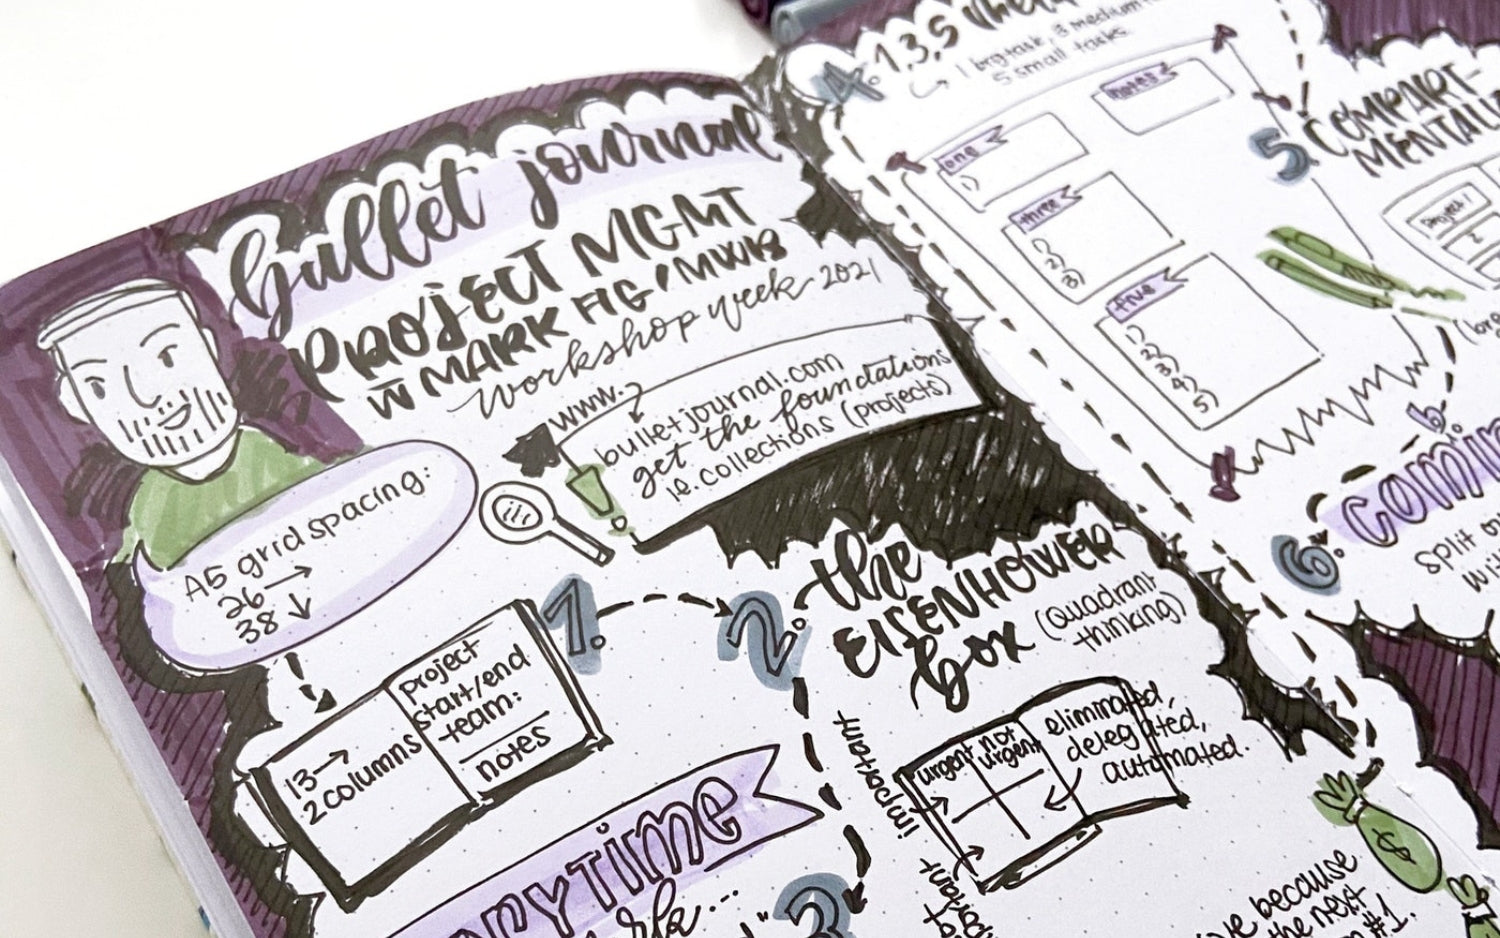 Bullet journal
PROJECT MGMT
W MARK FIG/MWIB
workshop week 2021
www.
bulletjournal.com
get the foundations
ie. collections (projects)
A5 grid spacing:
26 →
38 ↓
1.
13 →
2 columns
project
start/end
team:
notes
2.
the
EISENHOWER
box
(Quadrant
thinking)
important
urgent
not
urgent
eliminated,
delegated,
automated.
TIME
3
because
the next
#1.
$
4. 1,3,5
1 big task, 3 medium
5 small tasks
notes
one
1)
three
1)
2)
3)
five
1)
2)
3)
4)
5)
5. COMPART-
project 1
6.
split